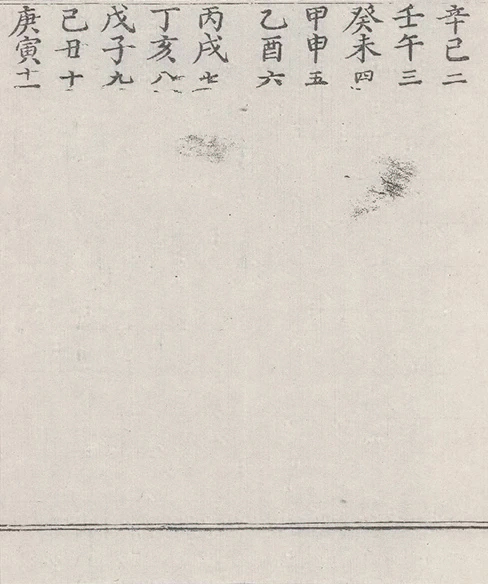 辛巳二
壬午三
癸未四
甲申五
乙酉六
丙戌七
丁亥八
戊子九
己丑十
庚寅十一